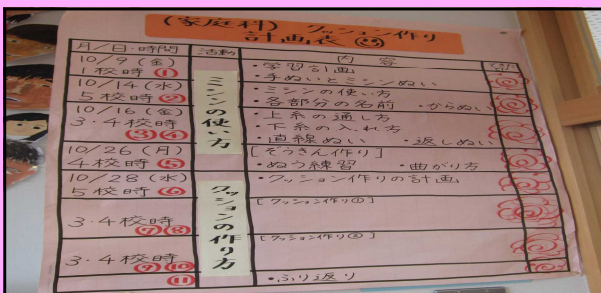 (家庭科) クッション作り
計画表 ㉓
月/日・時間 活動 内容
10/9(金)
1校時 ①
・学習計画
・手ぬいとミシンぬい
10/14(水)
5校時 ②
・ミシンの使い方
・各部分の名前 ・からぬい
10/16(金)
3・4校時
③④
・上糸の通し方
・下糸の入れ方
・直線ぬい ・返しぬい
ミシンの使い方
10/26(月)
4校時 ⑤
[ぞうきん作り]
・ぬう練習 ・曲がり方
10/28(水)
5校時 ⑥
・クッション作りの計画
クッションの作り方
3・4校時
⑦⑧
[クッション作り①]
3・4校時
⑨⑩
[クッション作り②]
⑪
・ふり返り